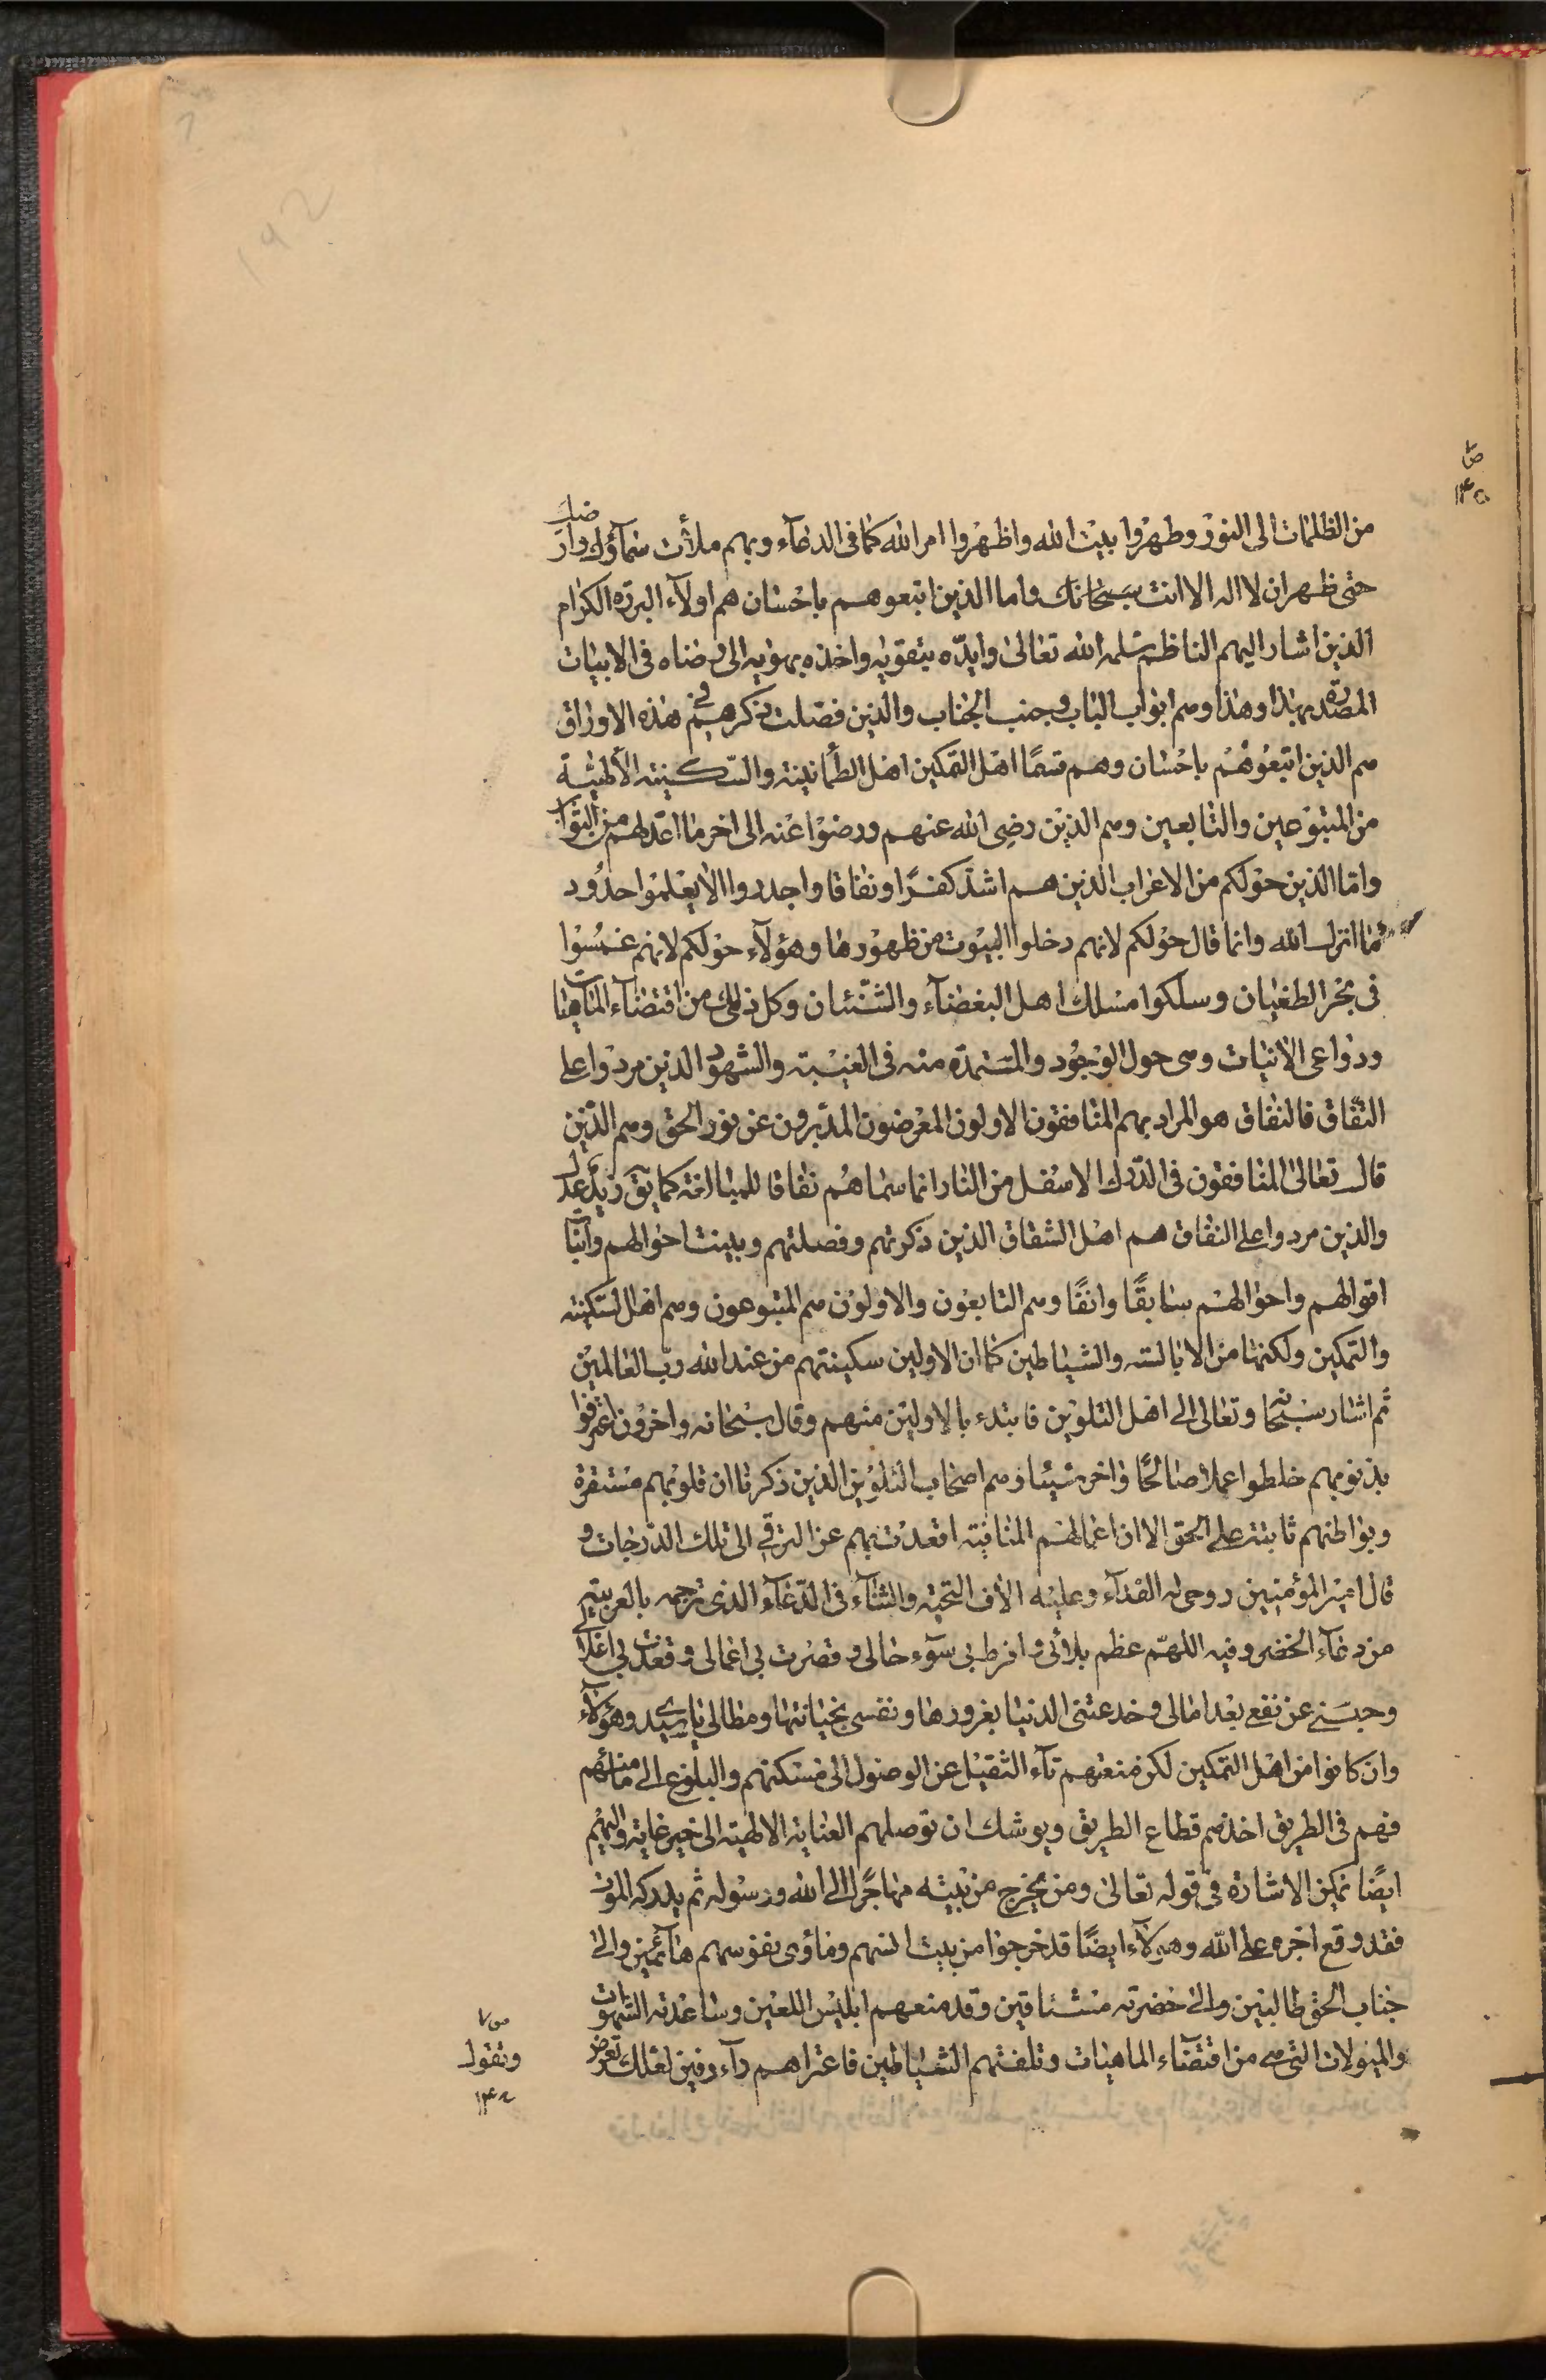 ص
١٤٥
من الظلمات الى النور وطهروا بيت الله واظهروا امر الله كما فى الدعآء وبهم ملأت سمآؤك وارضك
حتى ظهر ان لا اله الا انت سبحانك واما الذين اتبعوهم باحسان هم اولآء البررة الكرام
الذين اشار اليهم الناظم سلمه الله تعالى وايدّه بتقويه واخذه بهويه الى رضاه فى الابيات
المصدرة بهذا وهذا وهم ابواب الباب وجنب الجناب والذين فصّلت ذكرهم فى هذه الاوراق
هم الذين اتبعُوهُم باحسان وهم قسمًا اهل التمكين اهل الطمأنينة والسّكينته الألهيّة
من المتبوعين والتابعين وهم الذين رضى الله عنهم ورضوا عنه الى اخر ما اعّد لهم من الثواب
وامّا الذين حولكم من الاعراب الذين هم اشدّ كفرًا ونفاقا واجدروا الا يعلموا حدُود
ما انزل الله وانما قال حولكم لانهم دخلوا البيوت من ظهورها وهؤلآء حولكم لانهم غمسُوا
فى بحر الطغيان وسلكوا مسلك اهل البغضآء والشّنئان وكل ذلك من اقتضآء الماهيات
ودواعى الانيات وهى حول الوجُود والمستمدّه منه فى الغيبة والشهود الذين مردوا على
النّفاق فالنفاق هو المراد بهم المنافقون الاولون المعرضون المدبرون عن نور الحق وهم الذّين
قال تعالى المنافقون فى الدّرك الاسفل من النار انما سماهُم نفاقا للمبالغة كما يقّ زيد عدل
والذين مردوا على النفاق هم اهل الشقاق الذين ذكرتهم وفصلتهم وبينت احوالهم وابنّا
اقوالهم واحوالهم سابقًا وانفًا وهم التابعون والاولون هم المتبوعون وهم اهل السّكينه
والتمكين ولكنها من الابالسة والشياطين كما ان الاولين سكينتهم من عند الله ربّ العالمين
ثم اشار سبحانه وتعالى الى اهل التلوين فابتدء بالاولين منهم وقال سبحانه واخرون اعترفوا
بذنوبهم خلطوا عملا صالحًا واخر سيئا وهم اصحاب التلوين الذين ذكرنا ان قلوبهم مستقرة
وبواطنهم ثابتة على الحق الا ان اعمالهم المنافية اقعدت بهم عن الترقى الى تلك الدّرجات و
قال امير المؤمنين روحى له الفدآء وعليه الاف التحية والثنآء فى الدّعآء الذى ترجمه بالعربيّة
من دعآء الخضر وفيه اللهمّ عظم بلائى وافرط بى سوء حالى وقصرت بى اعمالى وقعدت بى اغلالى
وحبسنى عن نفع بعد امالى وخدعتنى الدنيا بغرورها ونفسى بخيانتها ومطالى يا سيدى وهؤلآء
وان كانوا من اهل التمكين لكن منعهم دآء الثقيل عن الوصول الى مسكنهم والبلوغ الى مامنهم
فهم فى الطريق اخذهم قطاع الطريق ويوشك ان توصلهم العناية الالهية الى خير غاية واليهم
ايضًا تمكن الاشارة فى قوله تعالى ومن يخرج من بيته مهاجرًا الى الله ورسوله ثم يدركه الموت
فقد وقع اجره على الله وهؤلآء ايضًا قد خرجوا من بيت انيتهم ومأوى نفوسهم هائمين والى
جناب الحق طالبين والى حضرته مشتاقين وقد منعهم ابليس اللعين وساعدته الشهوات
والميولات التى هى من اقتضآء الماهيات وتلقتهم الشياطين فاعتراهم دآء دفين لعلك تعرض
ص٧
وتقول
١٤٨